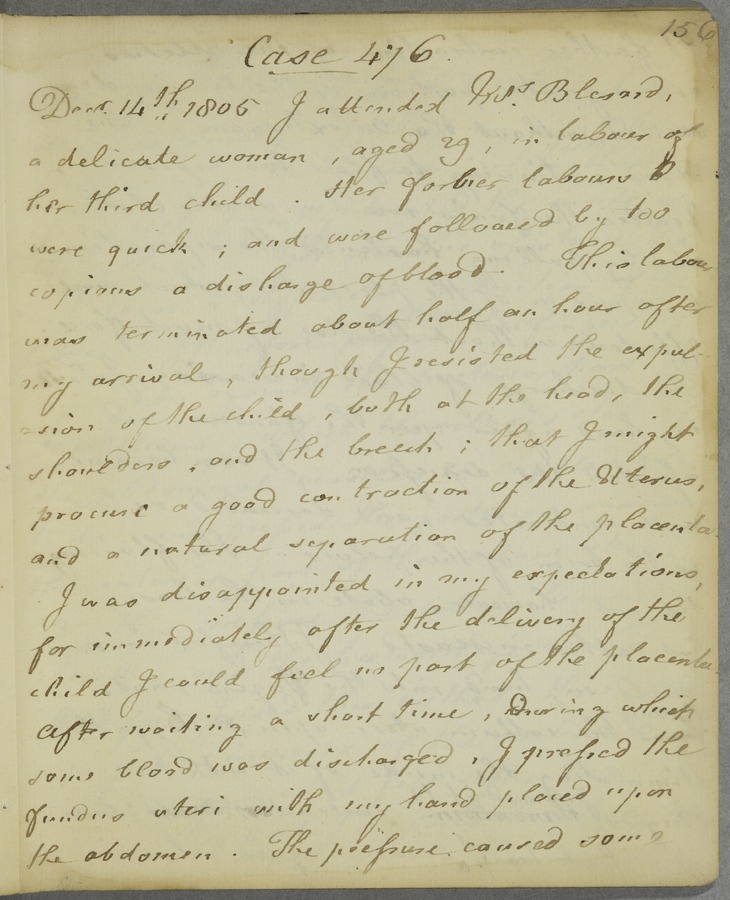 156
Case 476.
Decr. 14th 1805 I attended Mrs. Blesard,
a delicate woman, aged 29, in labour of
her third child. Her former labours
were quick; and were followed by too
copious a disharge of blood. This labour
was terminated about half an hour after
my arrival, though I resisted the expul-
-sion of the child, both at the head, the
shoulders, and the breech; that I might
procure a good contraction of the Uterus,
and a natural separation of the placenta.
I was disappointed in my expectations,
for immediately after the delivery of the
child I could feel no part of the placenta.
After waiting a short time, During which
some blood was discharged, I pressed the
fundus uteri with my hand placed upon
the abdomen. The pressure caused some